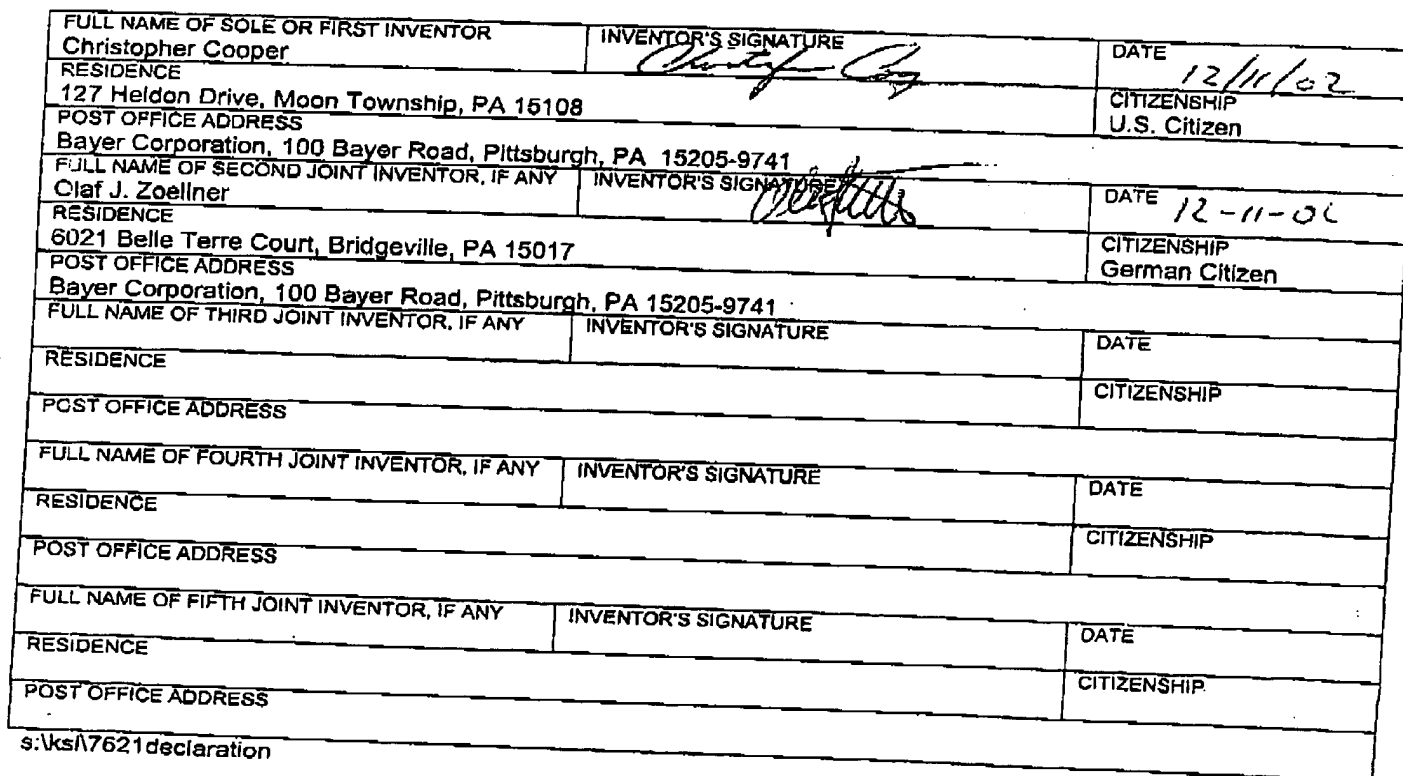 FULL NAME OF SOLE OR FIRST INVENTOR INVENTOR'S SIGNATURE DATE 12/11/02
Christopher Cooper
RESIDENCE CITIZENSHIP
127 Heldon Drive, Moon Township, PA 15108 U.S. Citizen
POST OFFICE ADDRESS
Bayer Corporation, 100 Bayer Road, Pittsburgh, PA 15205-9741
FULL NAME OF SECOND JOINT INVENTOR, IF ANY INVENTOR'S SIGNATURE DATE 12-11-02
Olaf J. Zoellner
RESIDENCE CITIZENSHIP
6021 Belle Terre Court, Bridgeville, PA 15017 German Citizen
POST OFFICE ADDRESS
Bayer Corporation, 100 Bayer Road, Pittsburgh, PA 15205-9741
FULL NAME OF THIRD JOINT INVENTOR, IF ANY INVENTOR'S SIGNATURE DATE
RESIDENCE CITIZENSHIP
POST OFFICE ADDRESS
FULL NAME OF FOURTH JOINT INVENTOR, IF ANY INVENTOR'S SIGNATURE DATE
RESIDENCE CITIZENSHIP
POST OFFICE ADDRESS
FULL NAME OF FIFTH JOINT INVENTOR, IF ANY INVENTOR'S SIGNATURE DATE
RESIDENCE CITIZENSHIP
POST OFFICE ADDRESS
s:\ksl\7621declaration